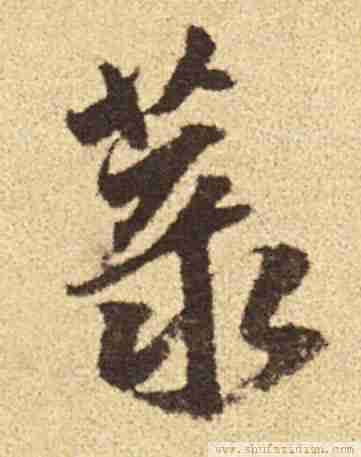 菉
www.shufazidian.com